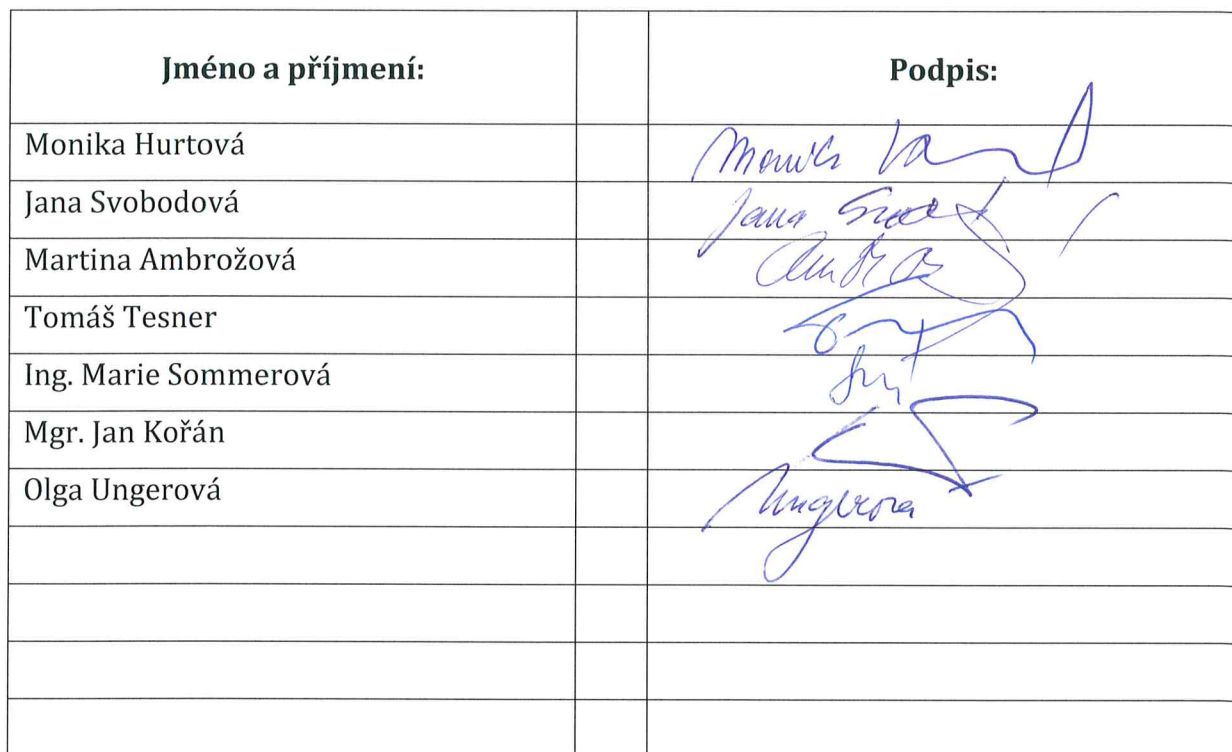 Jméno a příjmení: Podpis:
Monika Hurtová Monika
Jana Svobodová Jana
Martina Ambrožová
Tomáš Tesner
Ing. Marie Sommerová
Mgr. Jan Kořán
Olga Ungerová Ungerova